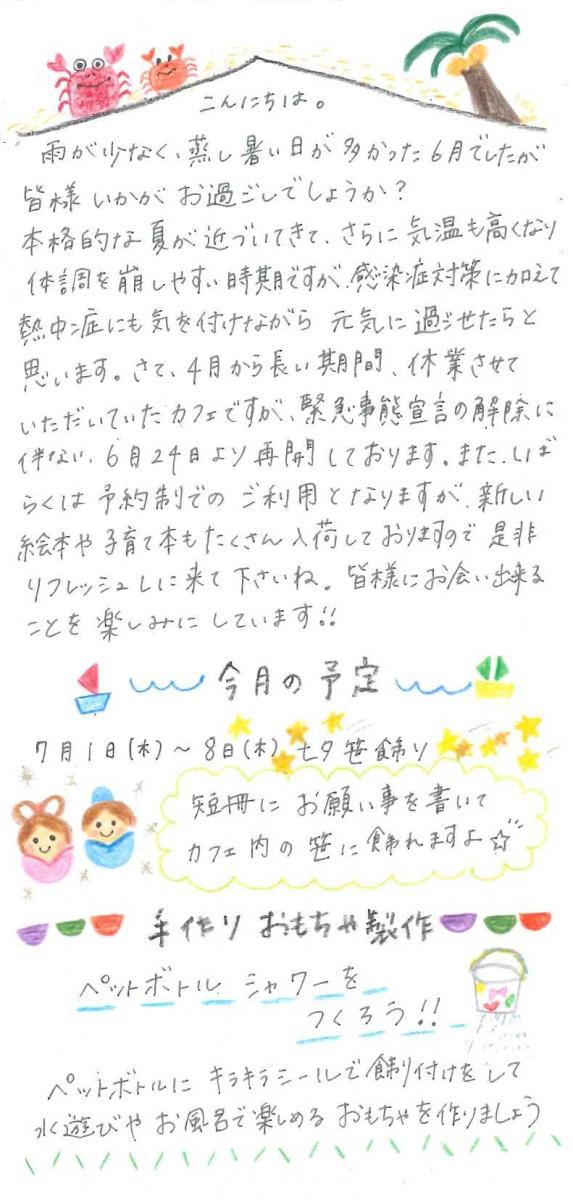 こんにちは。
雨が少なく、蒸し暑い日が多かった6月でしたが
皆様いかがお過ごしでしょうか？
本格的な夏が近づいてきて、さらに気温も高くなり
体調を崩しやすい時期ですが、感染症対策に加えて
熱中症にも気を付けながら元気に過ごせたらと
思います。さて、4月から長い期間、休業させて
いただいていたカフェですが、緊急事態宣言の解除に
伴ない、6月24日より再開しております。また、しば
らくは予約制でのご利用となりますが、新しい
絵本や子育て本もたくさん入荷しておりますので是非
リフレッシュしに来て下さいね。皆様にお会い出来る
ことを楽しみにしています!!
今月の予定
7月1日(木)～8日(木) 七夕笹飾り
短冊にお願い事を書いて
カフェ内の笹に飾れますよ☆
手作りおもちゃ製作
ペットボトルシャワーを
つくろう!!
ペットボトルにキラキラシールで飾り付けをして
水遊びやお風呂で楽しめるおもちゃを作りましょう